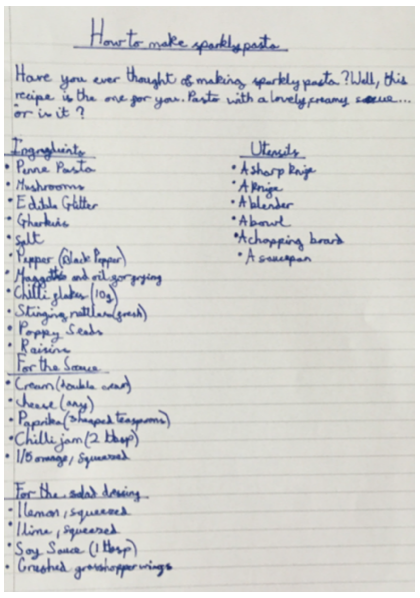 How to make sparkly pasta
Have you ever thought of making sparkly pasta? Well, this
recipe is the one for you. Pasta with a lovely, creamy sauce...
or is it?
Ingredients
• Penne Pasta
• Mushrooms
• Edible Glitter
• Gherkins
• Salt
• Pepper (Black Pepper)
• Maggots and oil for frying
• Chilli flakes (10g)
• Stinging nettles (fresh)
• Poppy Seeds
• Raisins
For the Sauce
• Cream (double cream)
• cheese (any)
• Paprika (3 heaped teaspoons)
• Chilli jam (2 tbsp)
• 1/8 orange, squeezed
For the salad dressing
• 1 lemon, squeezed
• 1 lime, squeezed
• Soy Sauce (1 tbsp)
• Crushed grasshopper wings
Utensils
• A sharp knife
• A knife
• A blender
• A bowl
• A chopping board
• A saucepan